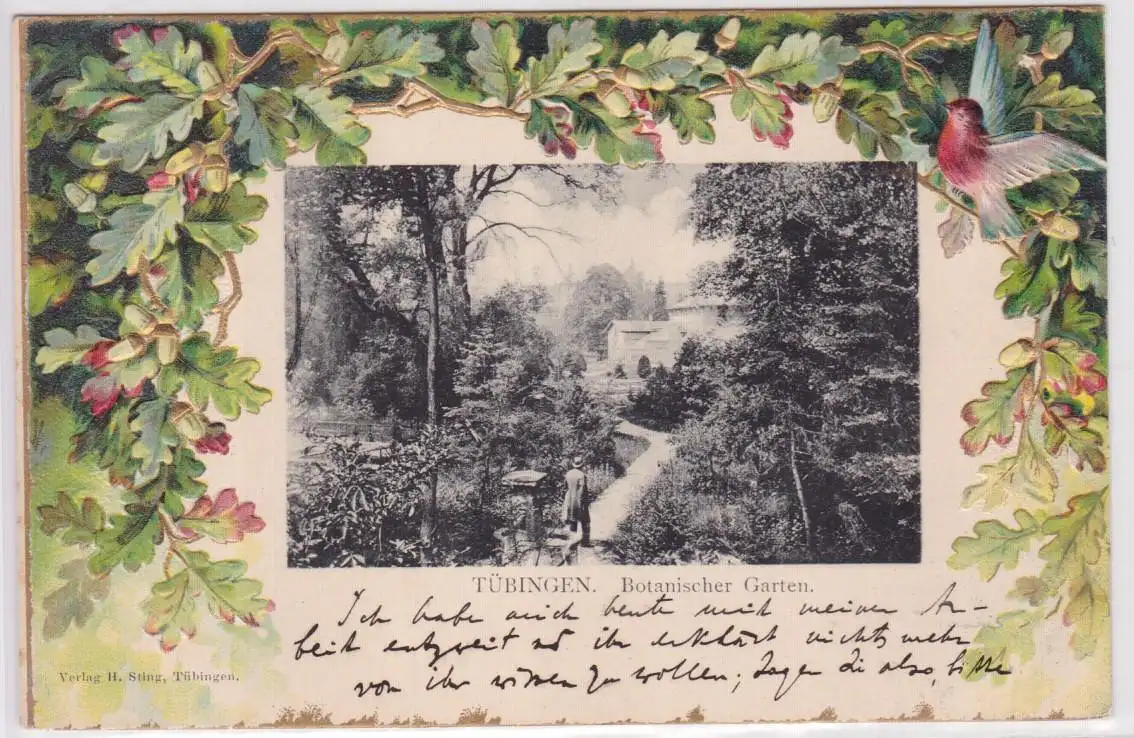 TÜBINGEN. Botanischer Garten.
Ich habe mich heute mit meiner Ar-
beit entzweit und ihr erklärt nichts mehr
von ihr wissen zu wollen; sagen Sie also, bitte
Verlag H. Sting, Tübingen.